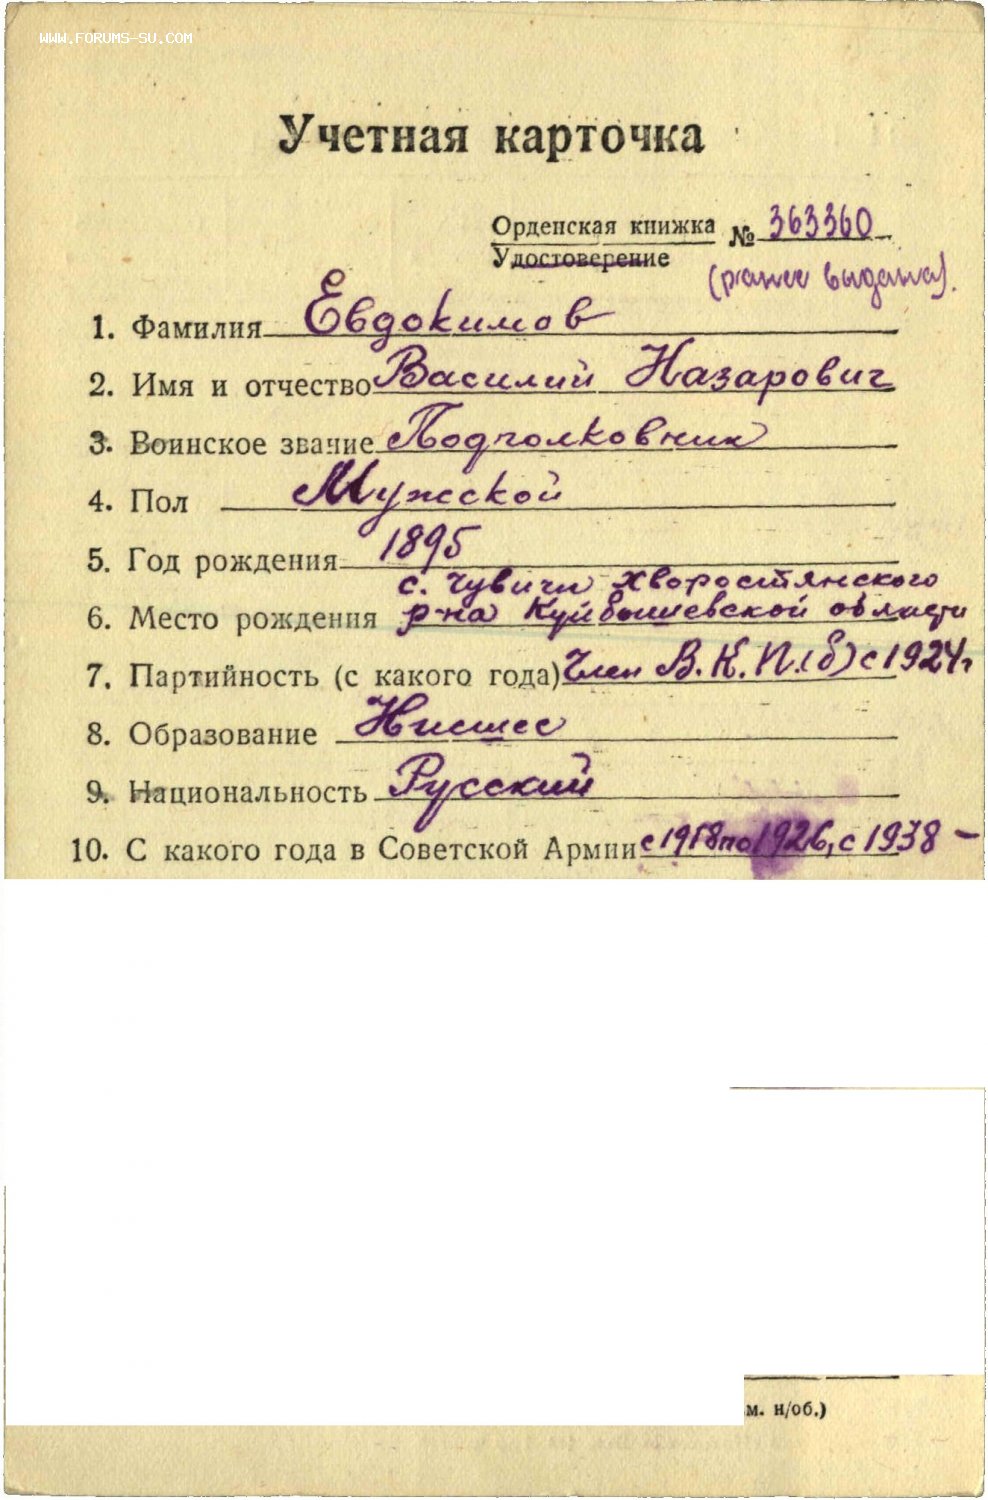 WWW.FORUMS-SU.COM
Учетная карточка
Орденская книжка № 363360
Удостоверение
(ранее выдана).
1. Фамилия Евдокимов
2. Имя и отчество Василий Назарович
3. Воинское звание Подполковник
4. Пол Мужской
5. Год рождения 1895
с. Чувичи Хворостянского
6. Место рождения р-на Куйбышевской области
7. Партийность (с какого года) Член В.К.П.(б) с 1924г
8. Образование Низшее
9. Национальность Русский
10. С какого года в Советской Армии с 1918 по 1926, с 1938 —
м. н/об.)